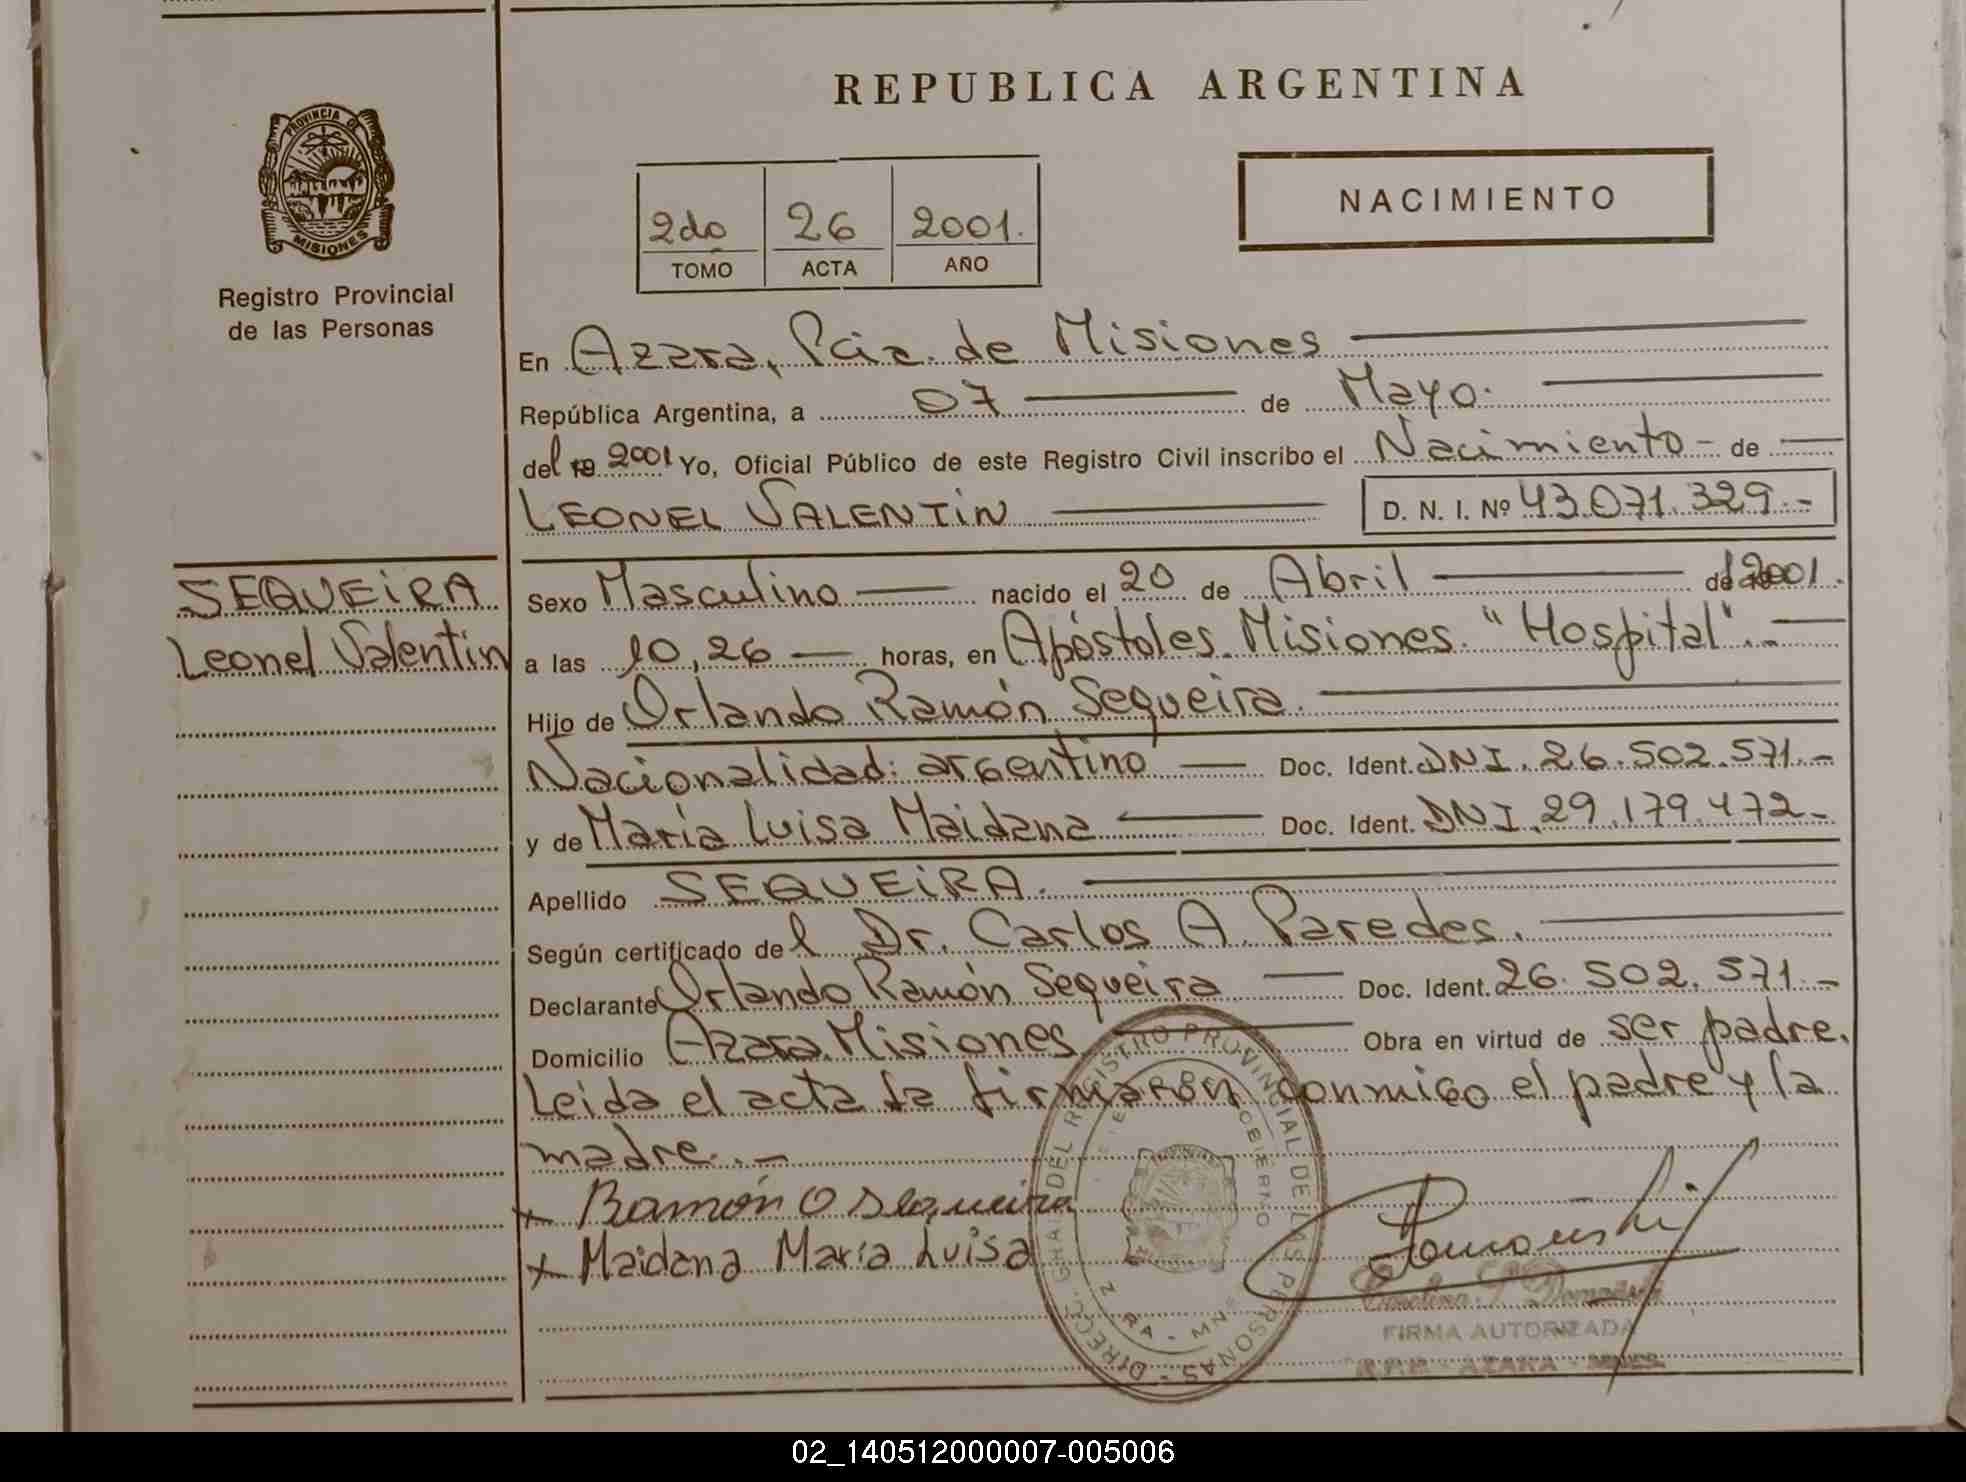 REPUBLICA ARGENTINA
PROVINCIA DE
MISIONES
Registro Provincial
de las Personas
2do 26 2001.
TOMO ACTA AÑO
NACIMIENTO
En Azara, Pcia. de Misiones
República Argentina, a 07 de Mayo.
del 19 2001 Yo, Oficial Público de este Registro Civil inscribo el Nacimiento - de
LEONEL VALENTIN D. N. I. Nº 43.071.329.-
SEQUEIRA
Leonel Valentin
Sexo Masculino nacido el 20 de Abril del 2001.
a las 10,26 horas, en Apóstoles. Misiones. "Hospital".-
Hijo de Orlando Ramón Sequeira.
Nacionalidad: argentino Doc. Ident. DNI. 26.502.571.-
y de María Luisa Maidana Doc. Ident. DNI. 29.179.472-
Apellido SEQUEIRA.
Según certificado del Dr. Carlos A. Paredes.
Declarante Orlando Ramón Sequeira Doc. Ident. 26.502.571.-
Domicilio Azara. Misiones Obra en virtud de ser padre.
Leida el acta la firmaron conmigo el padre y la
madre..-
x Ramón O Sequeira
x Maidana María Luisa
DIRECC. GRAL. DEL REGISTRO PROVINCIAL DE LAS PERSONAS -
FIRMA AUTORIZADA
R.P.P. - AZARA - MNES.
02_140512000007-005006